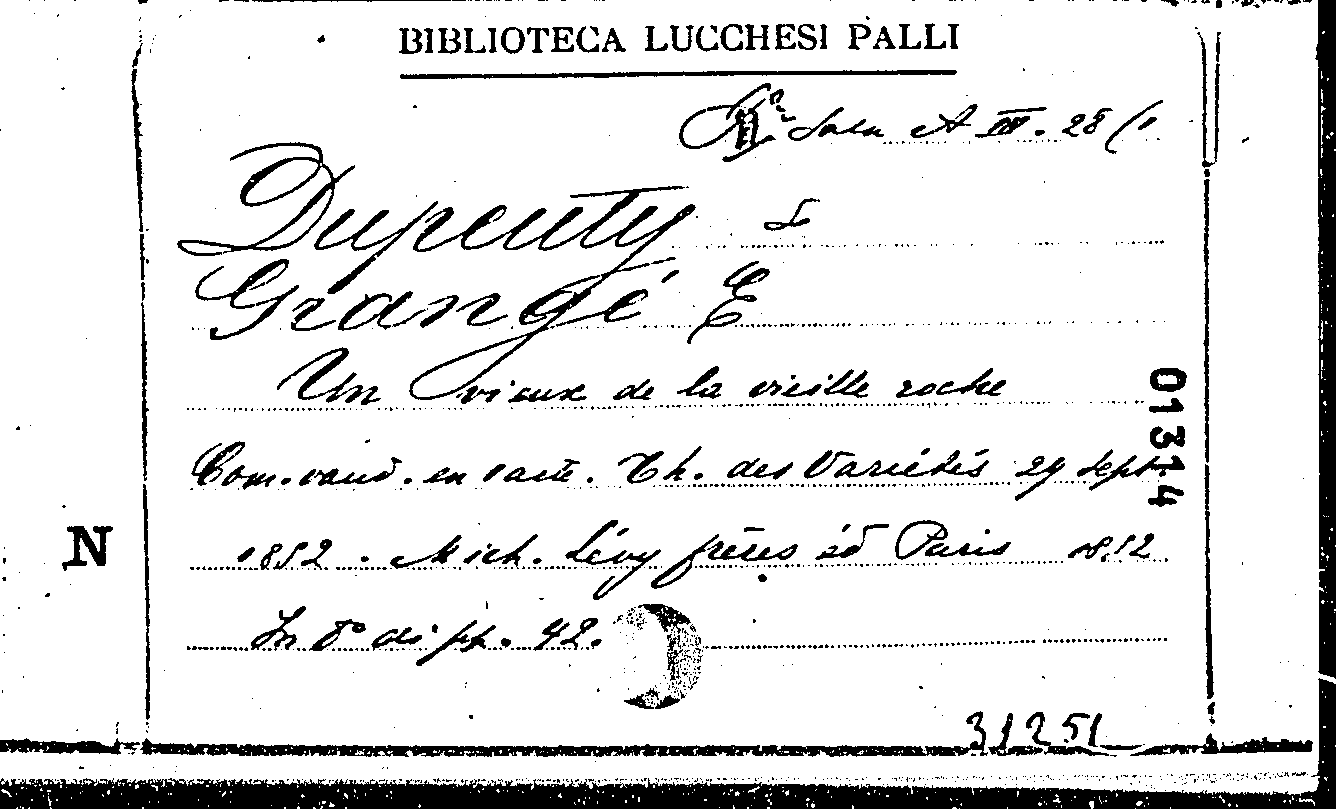 BIBLIOTECA LUCCHESI PALLI
Sala A III. 28 (1
Dupeuty
Grangé E
Un vieux de la vieille roche
Com. vaud. en 1 acte. Th. des Variétés 29 sept.
1852. Mich. Lévy frères éd Paris 1852
In 8° di pp. 42.
31251
01314
N